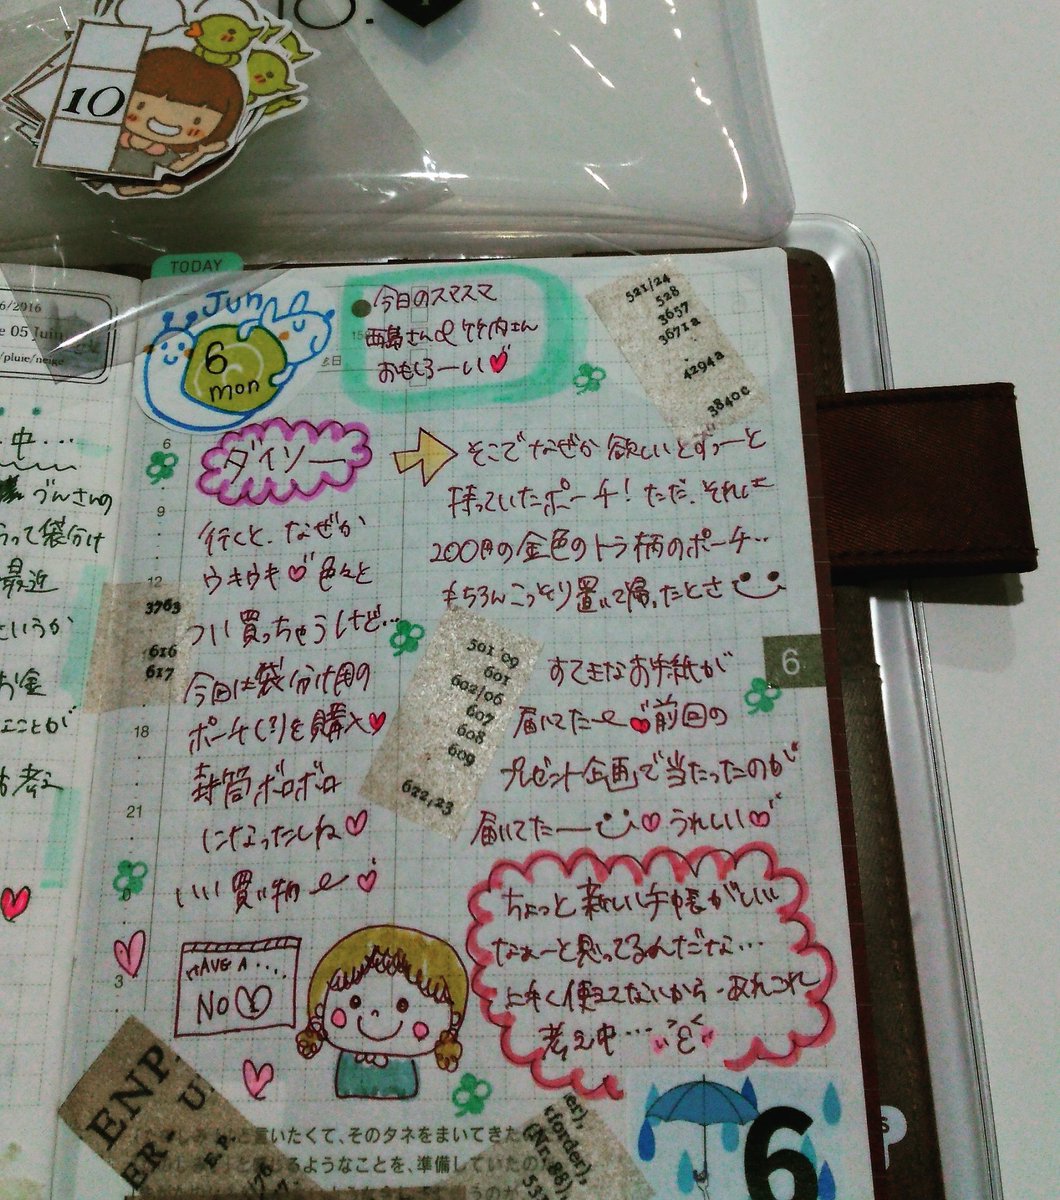 10
TODAY
6/2016
05 Juin
/pluie/neige
中...
づんさんの
って袋分け
最近
というか
お金
ことが
考え
Jun
6
mon
今日のスマスマ
西島さんと竹内さん
おもしろーい
521/24
528
3657
3671a
4294a
3840c
6
9
12
18
21
3
ダイソー
行くと、なぜか
ウキウキ 色々と
つい買っちゃうけど...
今回は袋分け用の
ポーチ(?)を購入
封筒ボロボロ
になったしね
いい買い物
3763
616
617
そこでなぜか欲しいとずっーと
持っていたポーチ!ただ、それは
200円の金色のトラ柄のポーチ..
もちろんこっそり置いて帰ったとさ
501/09
601
602/06
607
608
609
622,23
6
すてきなお手紙が
届いてたー 前回の
プレゼント企画で当たったのが
届いてたー うれしい
ちょっと新しい手帳がほしい
なぁーと思ってるんだな...
上手く使えてないから、あれこれ
考え中...
HAVE A....
NO
ENP
ER
U
と言いたくて、そのタネをまいてきた
るようなことを、準備していたの
order),
(Nr. 88),
6